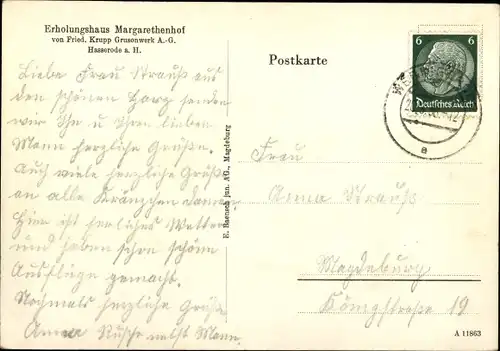 Erholungshaus Margarethenhof
von Fried. Krupp Grusonwerk A.-G.
Hasserode a. H.
Liebe Frau Strauß aus
den schönen Harz senden
wir Ihn u Ihren lieben
Mann herzliche Grüße.
Auch viele herzliche Grüße
an alle Kränzchen damen
Hier ist herliches Wetter
und haben schon schöne
Ausflüge gemacht.
Nochmals herzliche Grüße
Anna nebst Mann
E. Baensch jun. AG., Magdeburg
Postkarte
6 6
Deutsches Reich
Frau
Anna Strauß
Magdeburg
Königstraße 19
A 11863